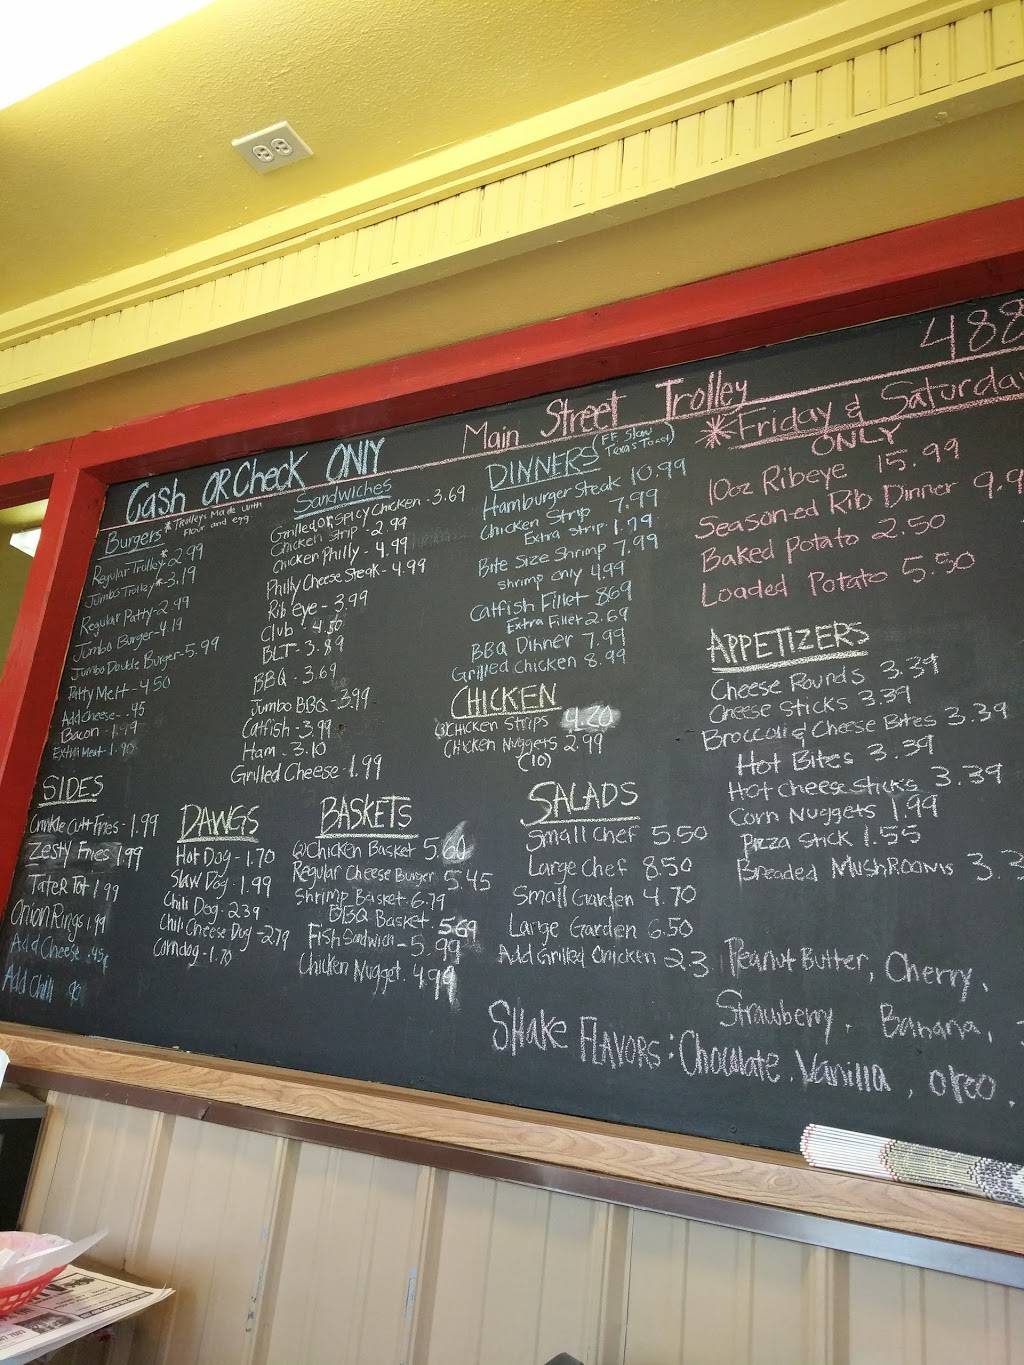 488
Main Street Trolley
Cash OR Check ONLY
*Trolleys Made with
Flour and egg
Burgers
Regular Trolley*-2.99
Jumbo Trolley*-3.19
Regular Patty-2.99
Jumbo Burger-4.19
Jumbo Double Burger-5.99
Patty Melt-4.50
Add Cheese-.45
Bacon-1.49
Extra Meat-1.90
Sandwiches
Grilled or Spicy Chicken-3.69
Chicken Strip-2.99
Chicken Philly-4.99
Philly Cheese Steak-4.99
Rib eye-3.99
Club-4.50
BLT-3.89
BBQ-3.69
Jumbo BBQ-3.99
Catfish-3.99
Ham-3.10
Grilled Cheese-1.99
DINNERS (FF Slaw
Texas Toast)
Hamburger Steak 10.99
Chicken Strip 7.99
Extra Strip 1.79
Bite Size Shrimp 7.99
Shrimp only 4.99
Catfish Fillet 8.69
Extra Fillet 2.69
BBQ Dinner 7.99
Grilled Chicken 8.99
CHICKEN
Chicken Strips 4.20
Chicken Nuggets 2.99
(10)
*Friday & Saturday
ONLY
10oz Ribeye 15.99
Seasoned Rib Dinner 9.9
Baked Potato 2.50
Loaded Potato 5.50
APPETIZERS
Cheese Rounds 3.39
Cheese Sticks 3.39
Broccoli & Cheese Bites 3.39
Hot Bites 3.39
Hot Cheese Sticks 3.39
Corn Nuggets 1.99
Pizza Stick 1.55
Breaded Mushrooms 3.3
SIDES
Crinkle Cut Fries-1.99
Zesty Fries 1.99
Tater Tot 1.99
Onion Rings 1.99
Add Cheese .45¢
Add Chili .90
DAWGS
Hot Dog-1.70
Slaw Dog-1.99
Chili Dog-2.39
Chili Cheese Dog-2.79
Corndog-1.70
BASKETS
Chicken Basket 5.60
Regular Cheese Burger 5.45
Shrimp Basket 6.79
BBQ Basket 5.69
Fish Sandwich-5.99
Chicken Nugget 4.99
SALADS
Small Chef 5.50
Large Chef 8.50
Small Garden 4.70
Large Garden 6.50
Add Grilled Chicken 2.3
Peanut Butter, Cherry,
Strawberry, Banana,
SHake FLAVORS: Chocolate, Vanilla, oreo,